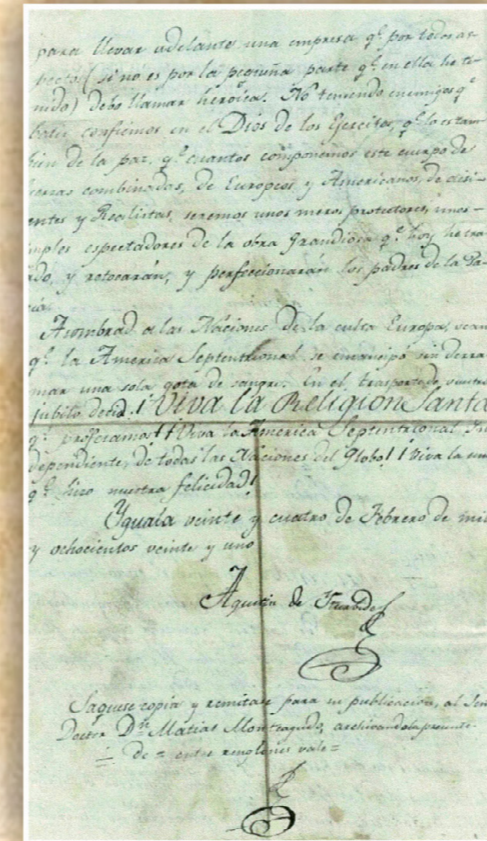 para llevar adelante una empresa q.e por todos as-
pectos (si no es por la pequeña parte q.e en ella he te-
nido) debo llamar heroica. No teniendo enemigos q.e
batir confiemos en el Dios de los Ejercitos, q.e lo es tam-
bien de la paz, q.e cuantos componemos este cuerpo de
fuerzas combinadas, de Europeos y Americanos, de disi-
entes y Realistas, seremos unos meros protectores, unos
simples espectadores de la obra grandiosa q.e hoy he tra-
do, y retocarán, y perfeccionarán los padres de la Pa-
ria.
Asombrad a las Naciones de la culta Europa, vean
q.e la America Septentrional se emancipó sin derra
mar una sola gota de sangre. En el trasporte de vuestro
jubilo decid. ! Viva la Religion Santa
q.e profesamos ! ! Viva la America Septentrional In
dependiente, de todas las Naciones del Globo! ! Viva la union
q.e hizo nuestra felicidad!
Yguala veinte y cuatro de Febrero de mil
y ochocientos veinte y uno
Agustin de Iturbide
Saquese copia y remitase para su publicacion, al Señ
Doctor D.n Matias Monteagudo, archivandola presente.
= de = entre renglones vale =